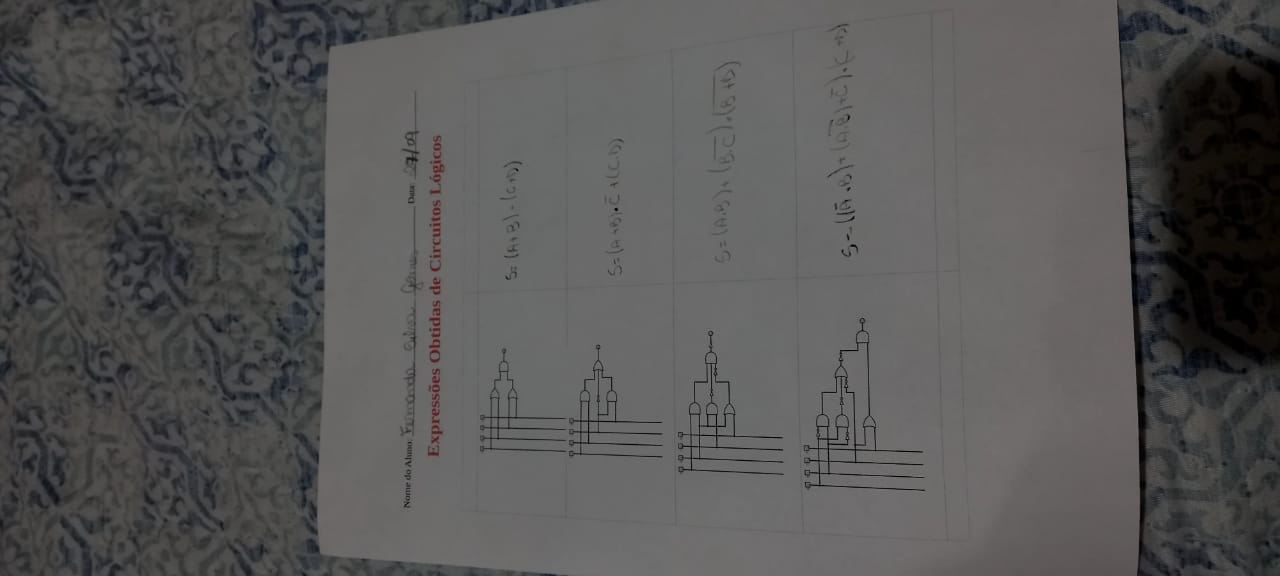 Nome do Aluno: Fernanda Data: 27/09
Expressões Obtidas de Circuitos Lógicos
S= (A+B) · (C+D)
S=(A+B)·C̅+(C.D)
S=(A.B)+(B̅.̅C̅)+(B̅+̅D̅)
S=((A̅.B)+(A̅.̅B̅)+C̅)·(C+D)